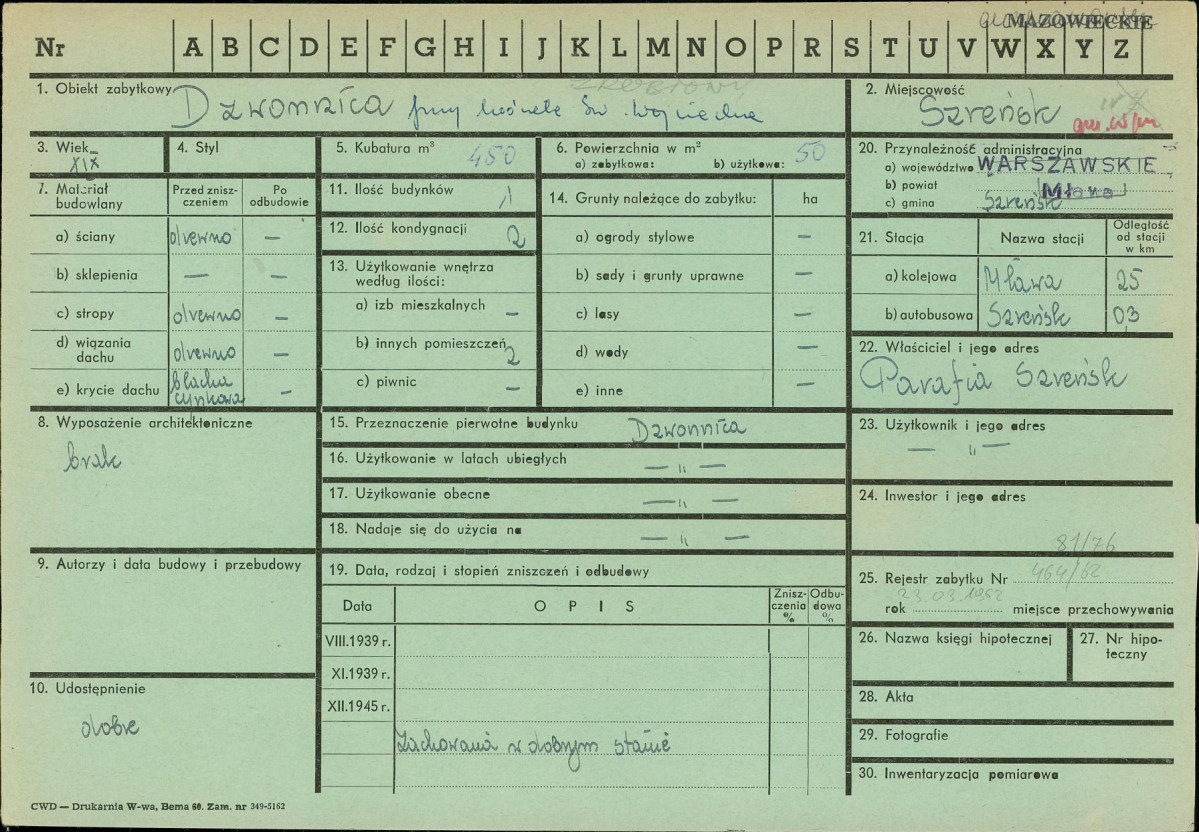 MAZOWIECKIE
Nr A B C D E F G H I J K L M N O P R S T U V W X Y Z
1. Obiekt zabytkowy Dzwonnica przy kościele Św. Wojciecha
2. Miejscowość
Szreńsk
3. Wiek
XIX
4. Styl
5. Kubatura m³ 450
6. Powierzchnia w m²
a) zabytkowa: b) użytkowa: 50
20. Przynależność administracyjna
a) województwo WARSZAWSKIE
b) powiat Mława
c) gmina Szreńsk
7. Materiał budowlany
Przed zniszczeniem
Po odbudowie
a) ściany drewno —
b) sklepienia — —
c) stropy drewno —
d) wiązania dachu drewno —
e) krycie dachu blacha cynkowa —
11. Ilość budynków 1
12. Ilość kondygnacji 2
13. Użytkowanie wnętrza
według ilości:
a) izb mieszkalnych —
b) innych pomieszczeń 2
c) piwnic —
14. Grunty należące do zabytku: ha
a) ogrody stylowe —
b) sady i grunty uprawne —
c) lasy —
d) wody —
e) inne —
21. Stacja Nazwa stacji Odległość od stacji w km
a) kolejowa Mława 25
b) autobusowa Szreńsk 03
22. Właściciel i jego adres
Parafia Szreńsk
8. Wyposażenie architektoniczne
brak
15. Przeznaczenie pierwotne budynku Dzwonnica
16. Użytkowanie w latach ubiegłych — „ —
17. Użytkowanie obecne — „ —
18. Nadaje się do użycia na — „ —
23. Użytkownik i jego adres
— „ —
24. Inwestor i jego adres
81/76
9. Autorzy i data budowy i przebudowy
19. Data, rodzaj i stopień zniszczeń i odbudowy
Data OPIS Zniszczenia % Odbudowa %
VIII.1939 r.
XI.1939 r.
XII.1945 r.
Zachowana w dobrym stanie
25. Rejestr zabytku Nr 464/62
23.03.1962
rok miejsce przechowywania
26. Nazwa księgi hipotecznej
27. Nr hipoteczny
10. Udostępnienie
dobre
28. Akta
29. Fotografie
30. Inwentaryzacja pomiarowa
CWD — Drukarnia W-wa, Bema 60. Zam. nr 349-5162